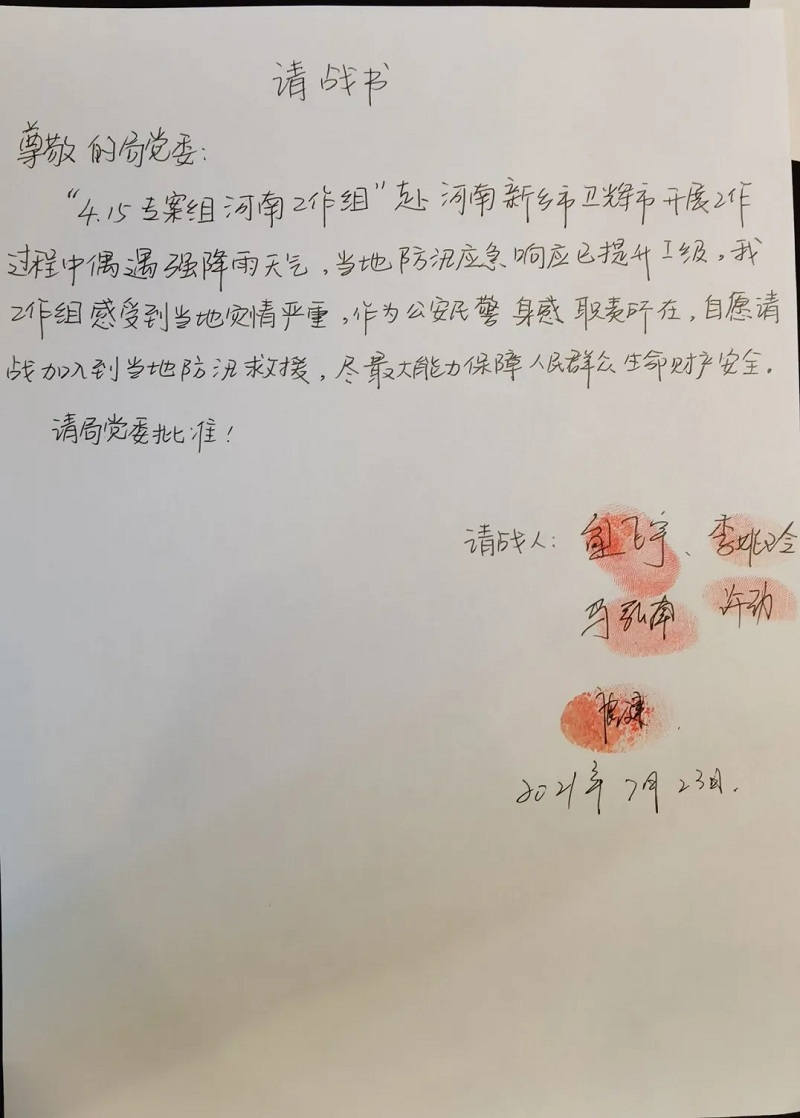 请战书
尊敬的局党委：
“4.15专案组河南工作组”赴河南新乡市卫辉市开展工作
过程中偶遇强降雨天气，当地防汛应急响应已提升I级，我
工作组感受到当地灾情严重，作为公安民警身感职责所在，自愿请
战加入到当地防汛救援，尽最大能力保障人民群众生命财产安全。
请局党委批准！
请战人：飞宇、李
马弘南 许劲
2021年7月23日.